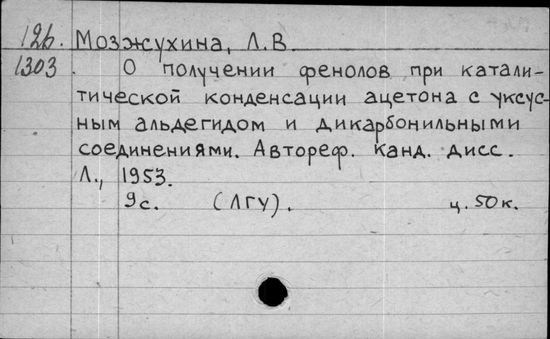 126. Мозжухина, Л.В.
1303. О получении фенолов при катали-
тической конденсации ацетона с уксус-
ным альдегидом и дикарбонильными
соединениями. Автореф. канд. дисс.
Л., 1953.
9с. (ЛГУ). ц. 50 к.